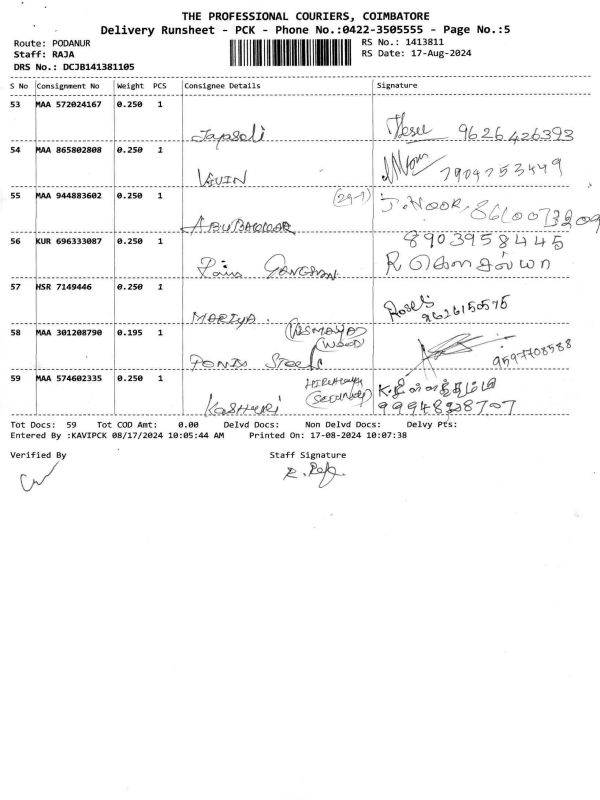 THE PROFESSIONAL COURIERS, COIMBATORE
Delivery Runsheet - PCK - Phone No.:0422-3505555 - Page No.:5
Route: PODANUR RS No.: 1413811
Staff: RAJA RS Date: 17-Aug-2024
DRS No.: DCJB141381105
S No Consignment No Weight PCS Consignee Details Signature
53 MAA 572024167 0.250 1
9626426393
54 MAA 865802808 0.250 1
KEVIN 7909753449
55 MAA 944883602 0.250 1 (29-1) J.NOOR
ABUBAKKAR
56 KUR 696333087 0.250 1 8903958445
R கௌசல்யா
57 HSR 7149446 0.250 1
MARIYA. 9626150575
58 MAA 301208790 0.195 1 (VISMAYA)
(WOOD)
PONDS STEELS 9597708588
59 MAA 574602335 0.250 1
(SECUNDARY)
KASTHURI
Tot Docs: 59 Tot COD Amt: 0.00 Delvd Docs: Non Delvd Docs: Delvy Pts:
Entered By :KAVIPCK 08/17/2024 10:05:44 AM Printed On: 17-08-2024 10:07:38
Verified By Staff Signature
R. Raja